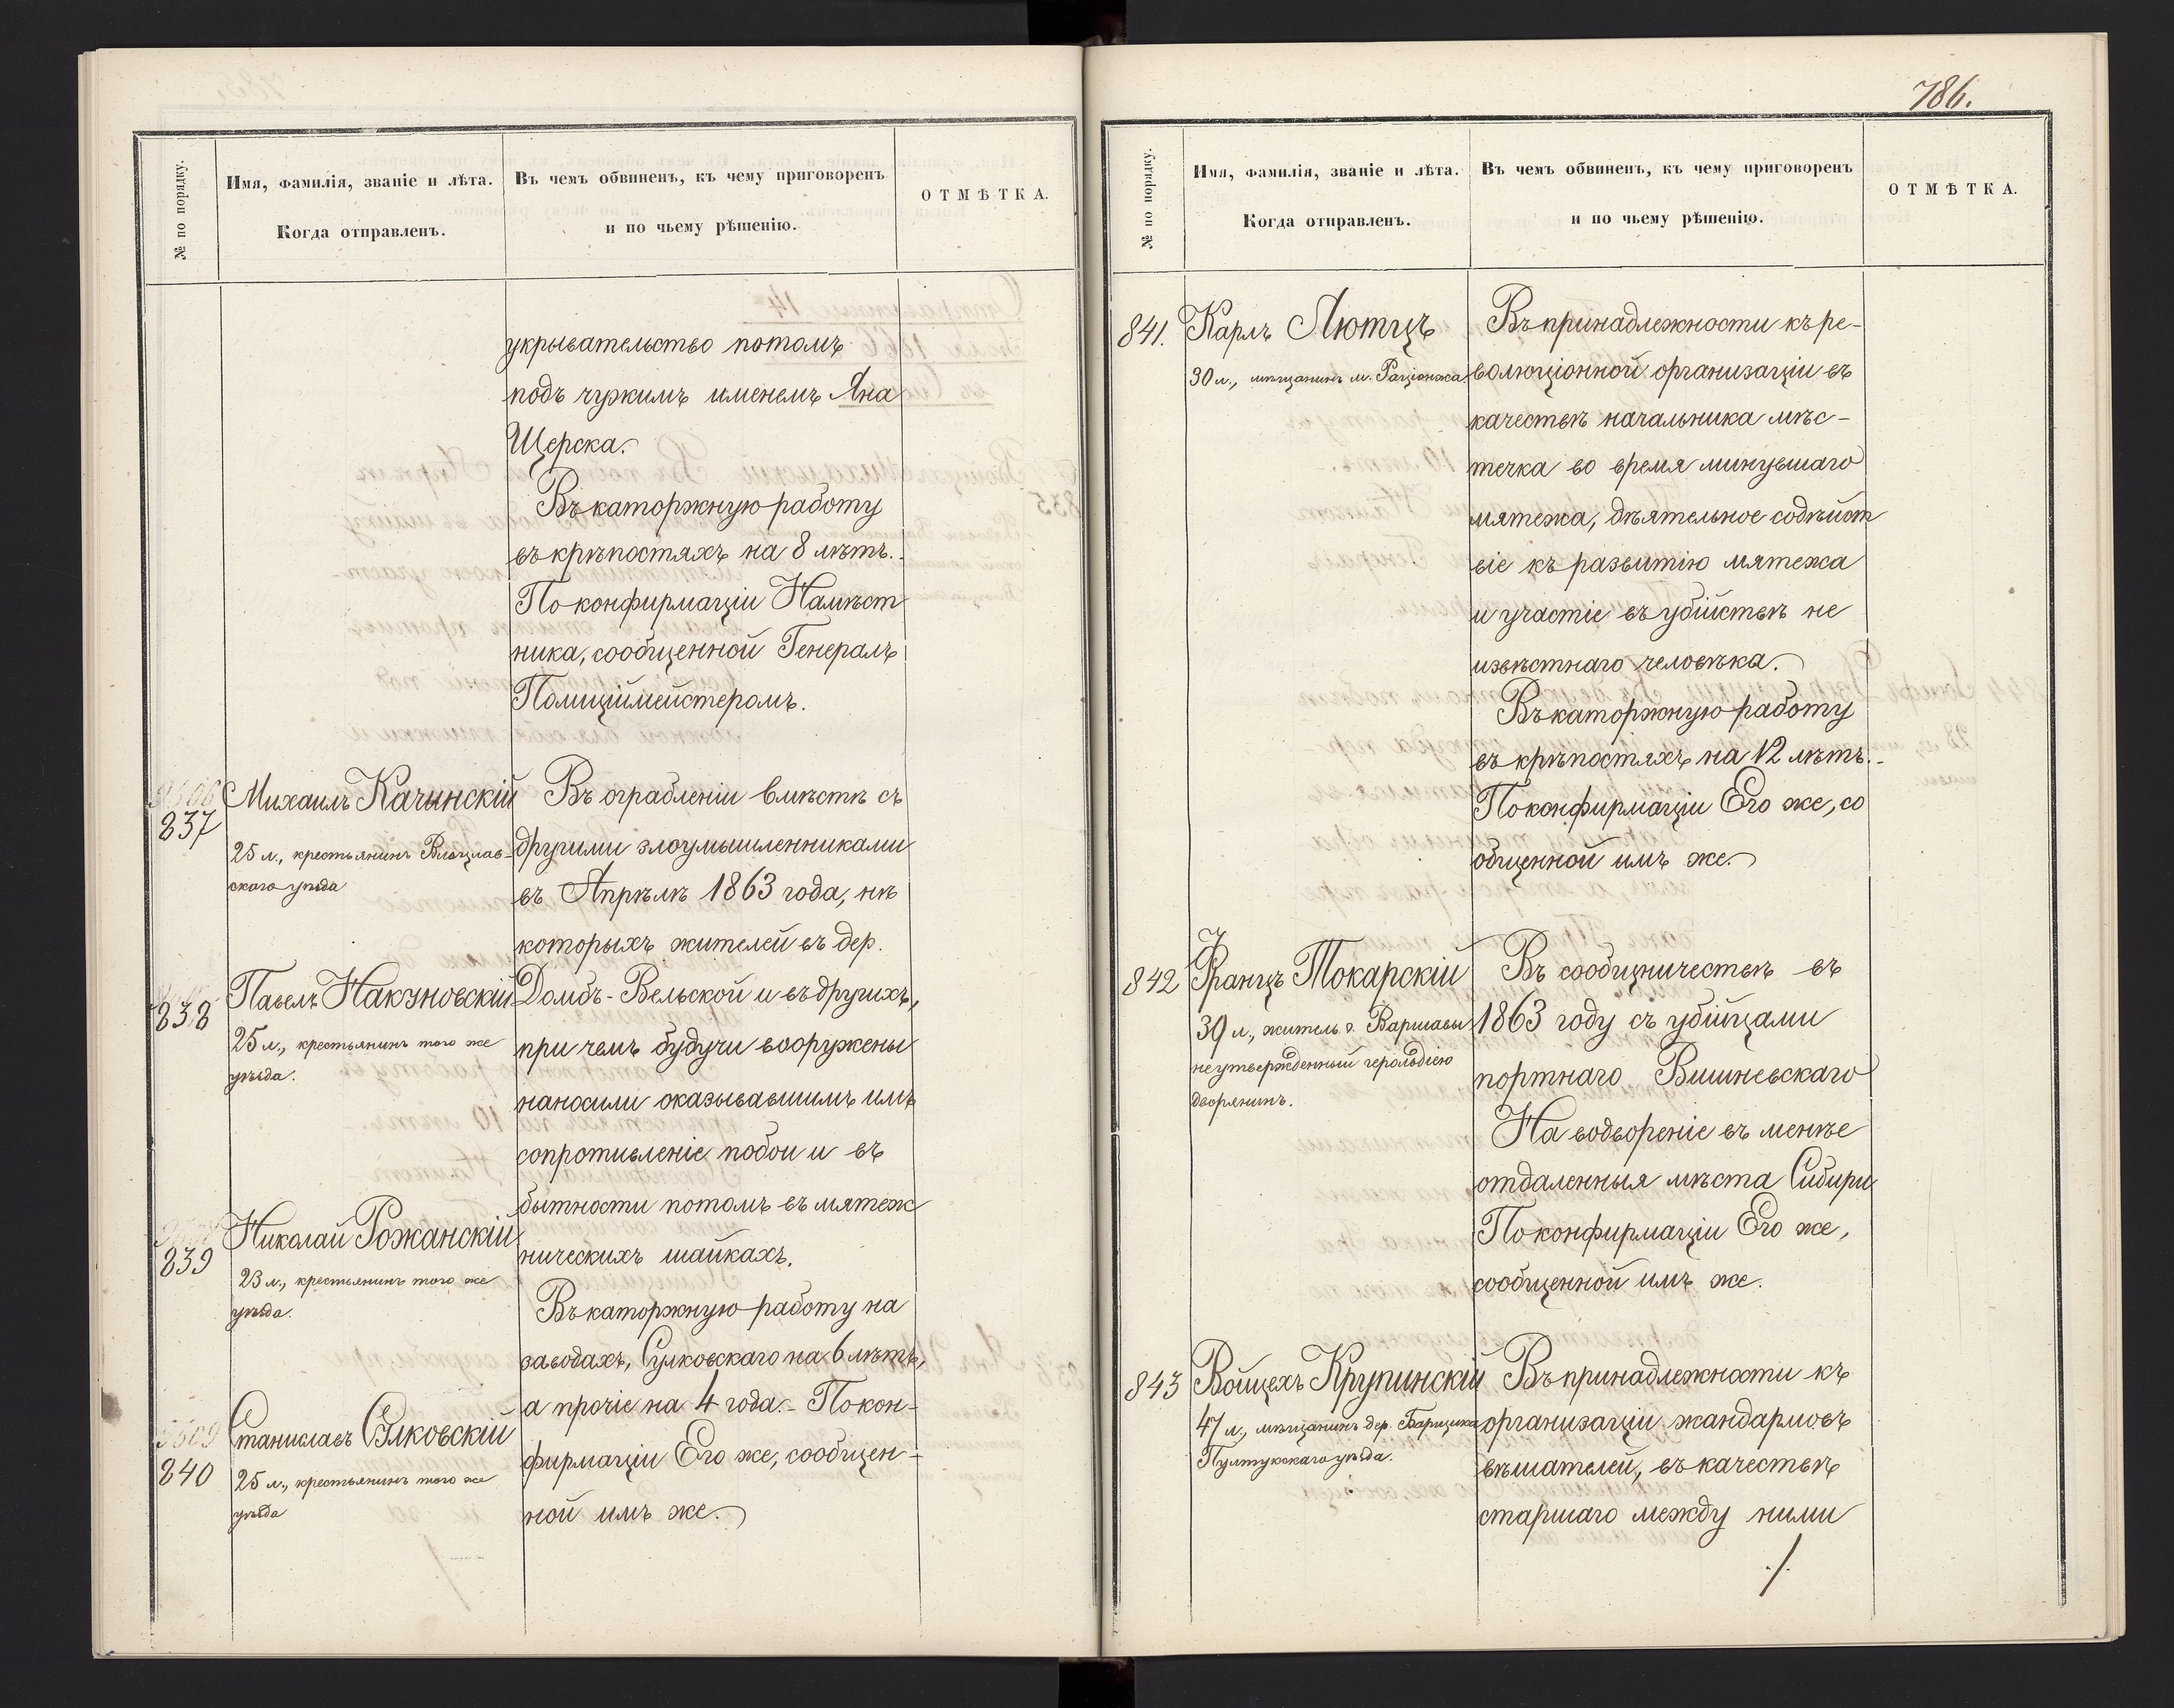 № по порядку.
Имя, фамилія, званіе и лѣта.
Когда отправленъ.
Въ чемъ обвиненъ, къ чему приговоренъ
и по чьему рѣшенію.
ОТМѢТКА.
укрывательство потомъ
подъ чужимъ именемъ Яна
Щерска.
Въ каторжную работу
въ крѣпостяхъ на 8 лѣтъ.
По конфирмаціи Намѣст
ника, сообщенной Генералъ
Полиціймейстеромъ.
837
Михаилъ Качинскій
25 л., крестьянинъ Влоцлав-
скаго уѣзда
838
Павелъ Накуновскій
25 л., крестьянинъ того же
уѣзда.
839
Николай Рожанскій
23 л., крестьянинъ того же
уѣзда.
840
Станиславъ Сулковскій
25 л., крестьянинъ того же
уѣзда
Въ ограбленіи вмѣстѣ съ
другими злоумышленниками
въ Апрѣлѣ 1863 года, нѣ
которыхъ жителей въ дер.
Домбъ-Вельской и въ другихъ,
при чемъ будучи вооружены
наносили оказывавшимъ имъ
сопротивленіе побои и въ
бытности потомъ въ мятеж
ническихъ шайкахъ.
Въ каторжную работу на
заводахъ, Сулковскаго на 6 лѣтъ,
а прочіе на 4 года. - По кон-
фирмаціи Его же, сообщен-
ной имъ же.
786.
№ по порядку.
Имя, фамилія, званіе и лѣта.
Когда отправленъ.
Въ чемъ обвиненъ, къ чему приговоренъ
и по чьему рѣшенію.
ОТМѢТКА.
841.
Карлъ Лютцъ
30 л., мѣщанинъ м. Раціонжа
Въ принадлежности къ ре-
волюціонной организаціи въ
качествѣ начальника мѣс-
течка во время минувшаго
мятежа, дѣятельное содѣйст
віе къ развитію мятежа
и участіе въ убійствѣ не
извѣстнаго человѣка.
Въ каторжную работу
въ крѣпостяхъ на 12 лѣтъ.-
По конфирмаціи Его же, со
общенной имъ же.
842
Францъ Токарскій
39 л., житель г. Варшавы
неутвержденный герольдіею
дворянинъ.
Въ сообщничествѣ въ
1863 году съ убійцами
портнаго Вишневскаго
На водвореніе въ менѣе
отдаленныя мѣста Сибири
По конфирмаціи Его же,
сообщенной имъ же.
843
Войцехъ Крупинскій
47 л., мѣщанинъ дер. Барщика
Пултускаго уѣзда.
Въ принадлежности къ
организаціи жандармовъ
вѣшателей, въ качествѣ
старшаго между ними
./.